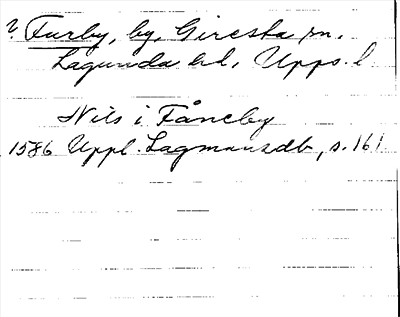 ? Furby, by, Giresta sn,
Lagunda hd, Upps. l
Nils i Fåneby
1586 Uppl. Lagmansdb, s. 161